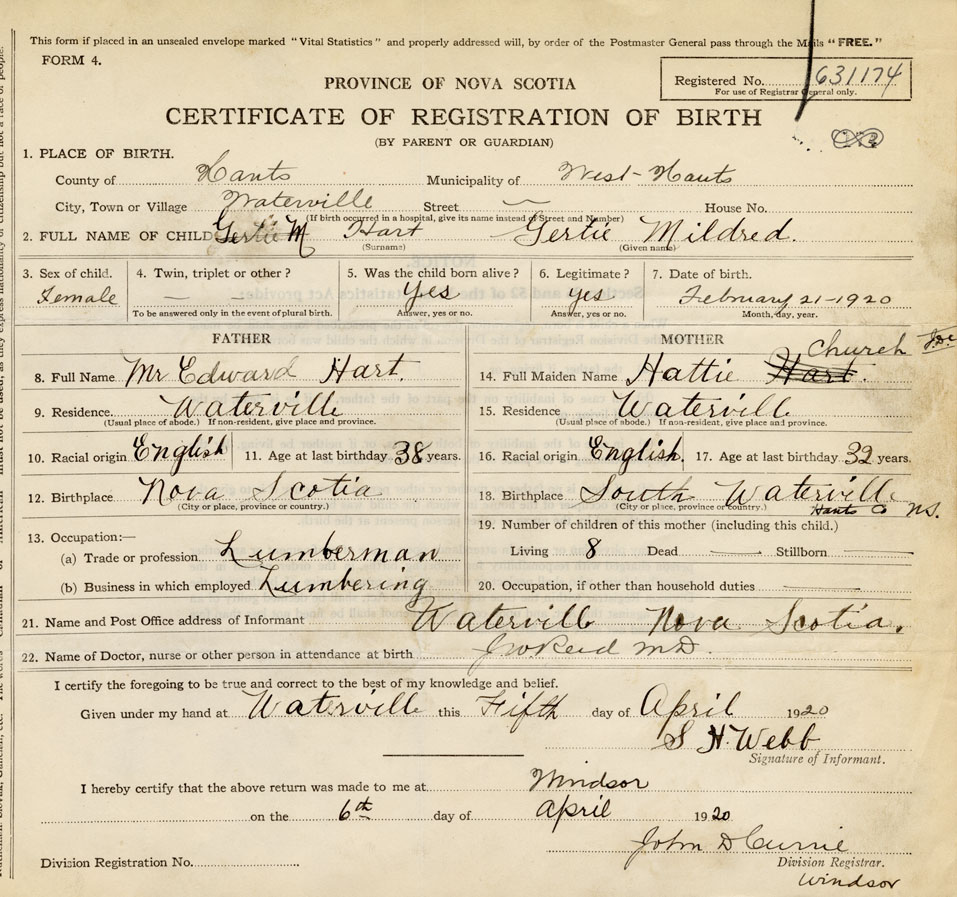 This form if placed in an unsealed envelope marked "Vital Statistics" and properly addressed will, by order of the Postmaster General pass through the Mails "FREE."
FORM 4.
PROVINCE OF NOVA SCOTIA
Registered No. 631174
For use of Registrar General only.
CERTIFICATE OF REGISTRATION OF BIRTH
(BY PARENT OR GUARDIAN)
1. PLACE OF BIRTH.
County of Hants Municipality of West-Hants
City, Town or Village Waterville Street — House No.
(If birth occurred in a hospital, give its name instead of Street and Number)
2. FULL NAME OF CHILD Gertie M Hart Gertie Mildred.
(Surname) (Given name)
3. Sex of child. 4. Twin, triplet or other? 5. Was the child born alive? 6. Legitimate? 7. Date of birth.
Female — — Yes Yes February 21-1920
To be answered only in the event of plural birth. Answer, yes or no. Answer, yes or no. Month, day, year.
FATHER MOTHER
Church
8. Full Name Mr Edward Hart. 14. Full Maiden Name Hattie Hart.
9. Residence. Waterville 15. Residence Waterville
(Usual place of abode.) If non-resident, give place and province. (Usual place of abode.) If non-resident, give place and province.
10. Racial origin English 11. Age at last birthday 38 years. 16. Racial origin English. 17. Age at last birthday 32 years.
12. Birthplace Nova Scotia 18. Birthplace South Waterville
(City or place, province or country.) (City or place, province or country.) Hants Co NS.
13. Occupation:— 19. Number of children of this mother (including this child.)
(a) Trade or profession Lumberman Living 8 Dead — Stillborn —
(b) Business in which employed Lumbering 20. Occupation, if other than household duties —
21. Name and Post Office address of Informant Waterville Nova Scotia.
22. Name of Doctor, nurse or other person in attendance at birth J W Reid MD.
I certify the foregoing to be true and correct to the best of my knowledge and belief.
Given under my hand at Waterville this Fifth day of April 1920
S H Webb
Signature of Informant.
I hereby certify that the above return was made to me at Windsor
on the 6th day of April 1920
John D Currie
Division Registrar.
Division Registration No.
Windsor